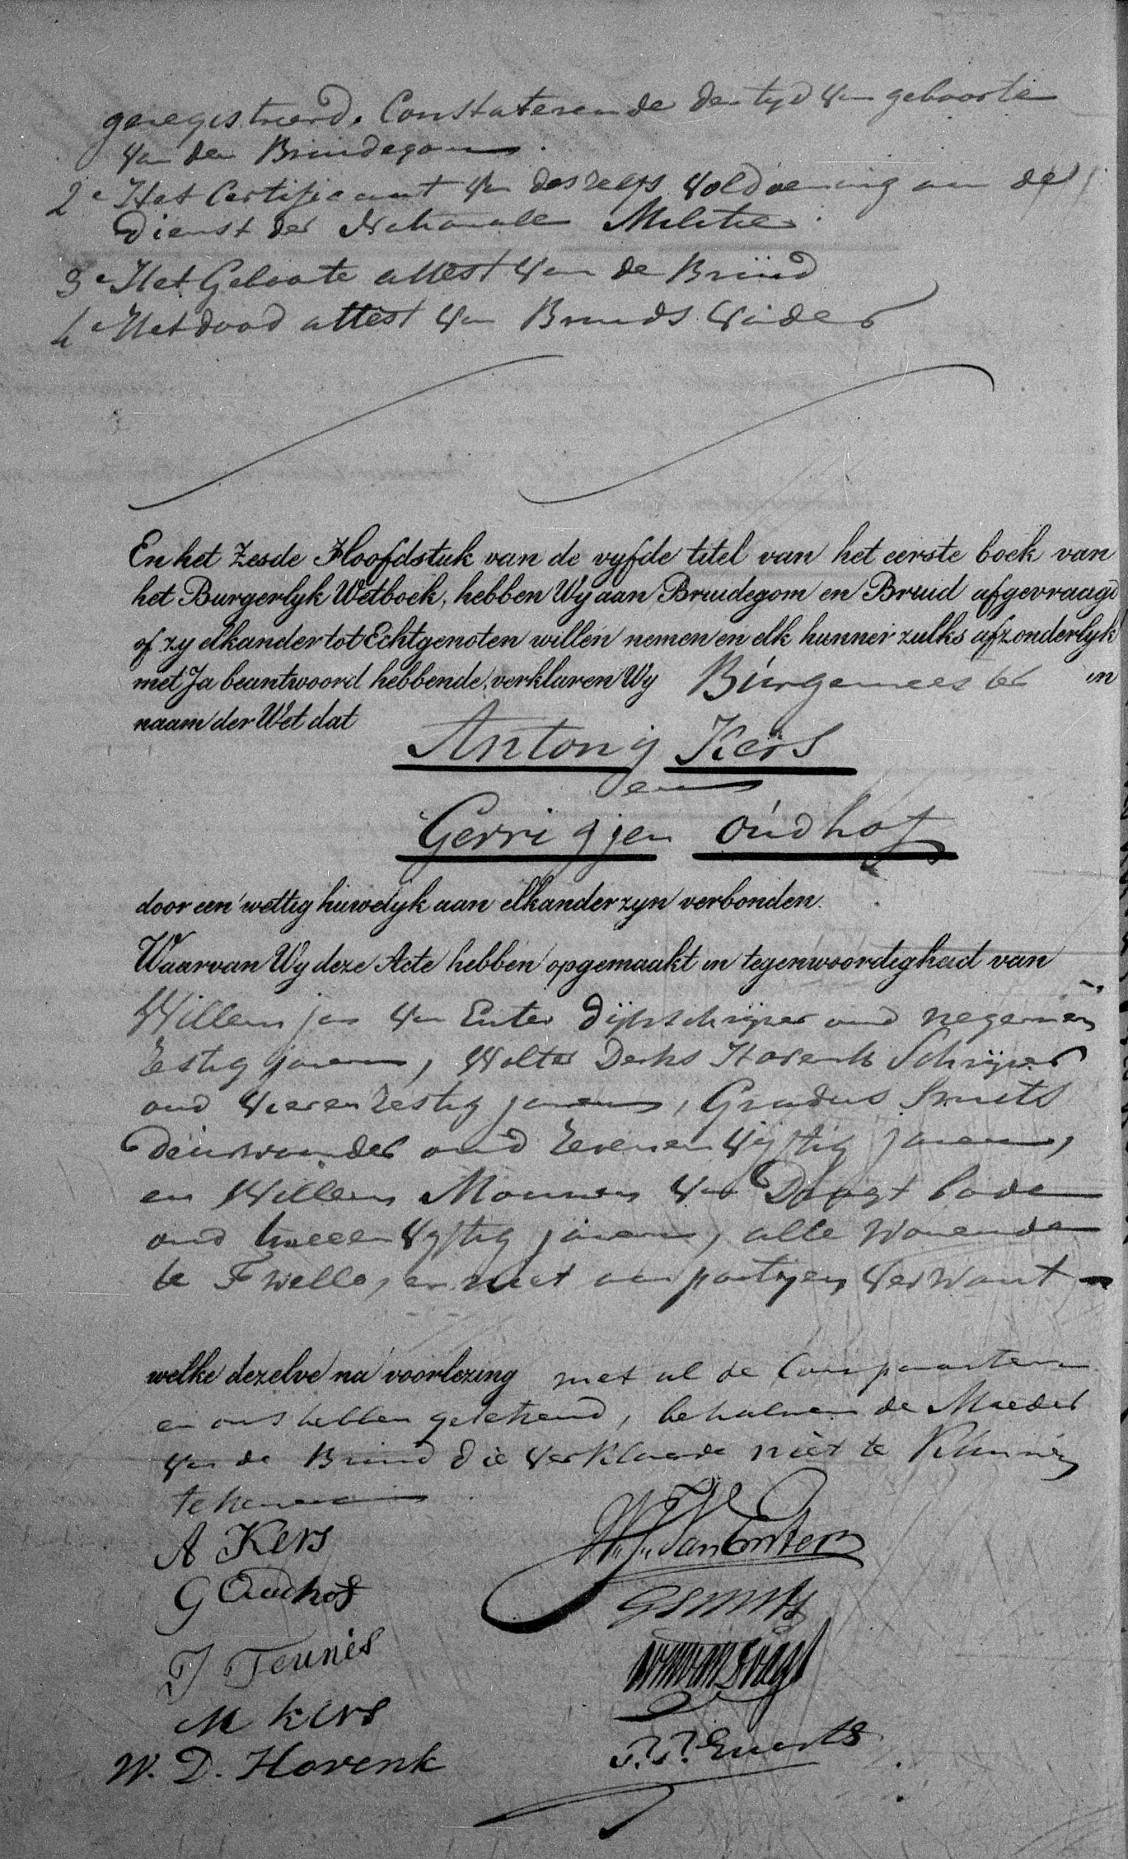 geregistreerd. Constaterende den tyd van geboorte
van den Bruidegom.
2e Het Certificaat van deszelfs voldoening aan de
Dienst der Nationale Militie
3e Het Geboorte attest van de Bruid
4e Het dood attest van Bruids Vader
En het Zesde Hoofdstuk van de vyfde titel van het eerste boek van
het Burgerlyk Wetboek, hebben Wy aan Bruidegom en Bruid afgevraagd
of zy elkander tot Echtgenoten willen nemen en elk hunner zulks afzonderlyk
met Ja beantwoord hebbende, verklaren Wy Burgemeester in
naam der Wet dat
Antonij Kers
en
Gerrigjen Oudhof
door een wettig huwelyk aan elkander zyn verbonden.
Waarvan Wy deze Acte hebben opgemaakt in tegenwoordigheid van
Willem Jan van Enter Dijkschrijver oud negenen
Zestig jaren, Wolter Derks Hovenk Schrijver
oud vierenzestig jaren, Gradus Smits
Deurwaarder oud Zevenenvijftig jaren,
en Willem van Voogt bode
oud tweeenvyftig jaren, alle wonende
te Twello, en niet aan partijen verwant
welke dezelve na voorlezing met al de Comparanten
en ons hebben getekend, behalven de Moeder
van de Bruid die verklaarde niet te kunnen
tekenen
A Kers
W. J. Van Enter
G Oudhof
G Smits
J Teunis
M Kers
W. D. Hovenk
Everts